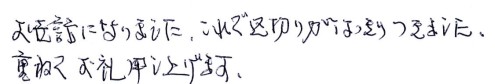 お世話になりました。これで区切りがはっきりつきました。
重ねてお礼申し上げます。